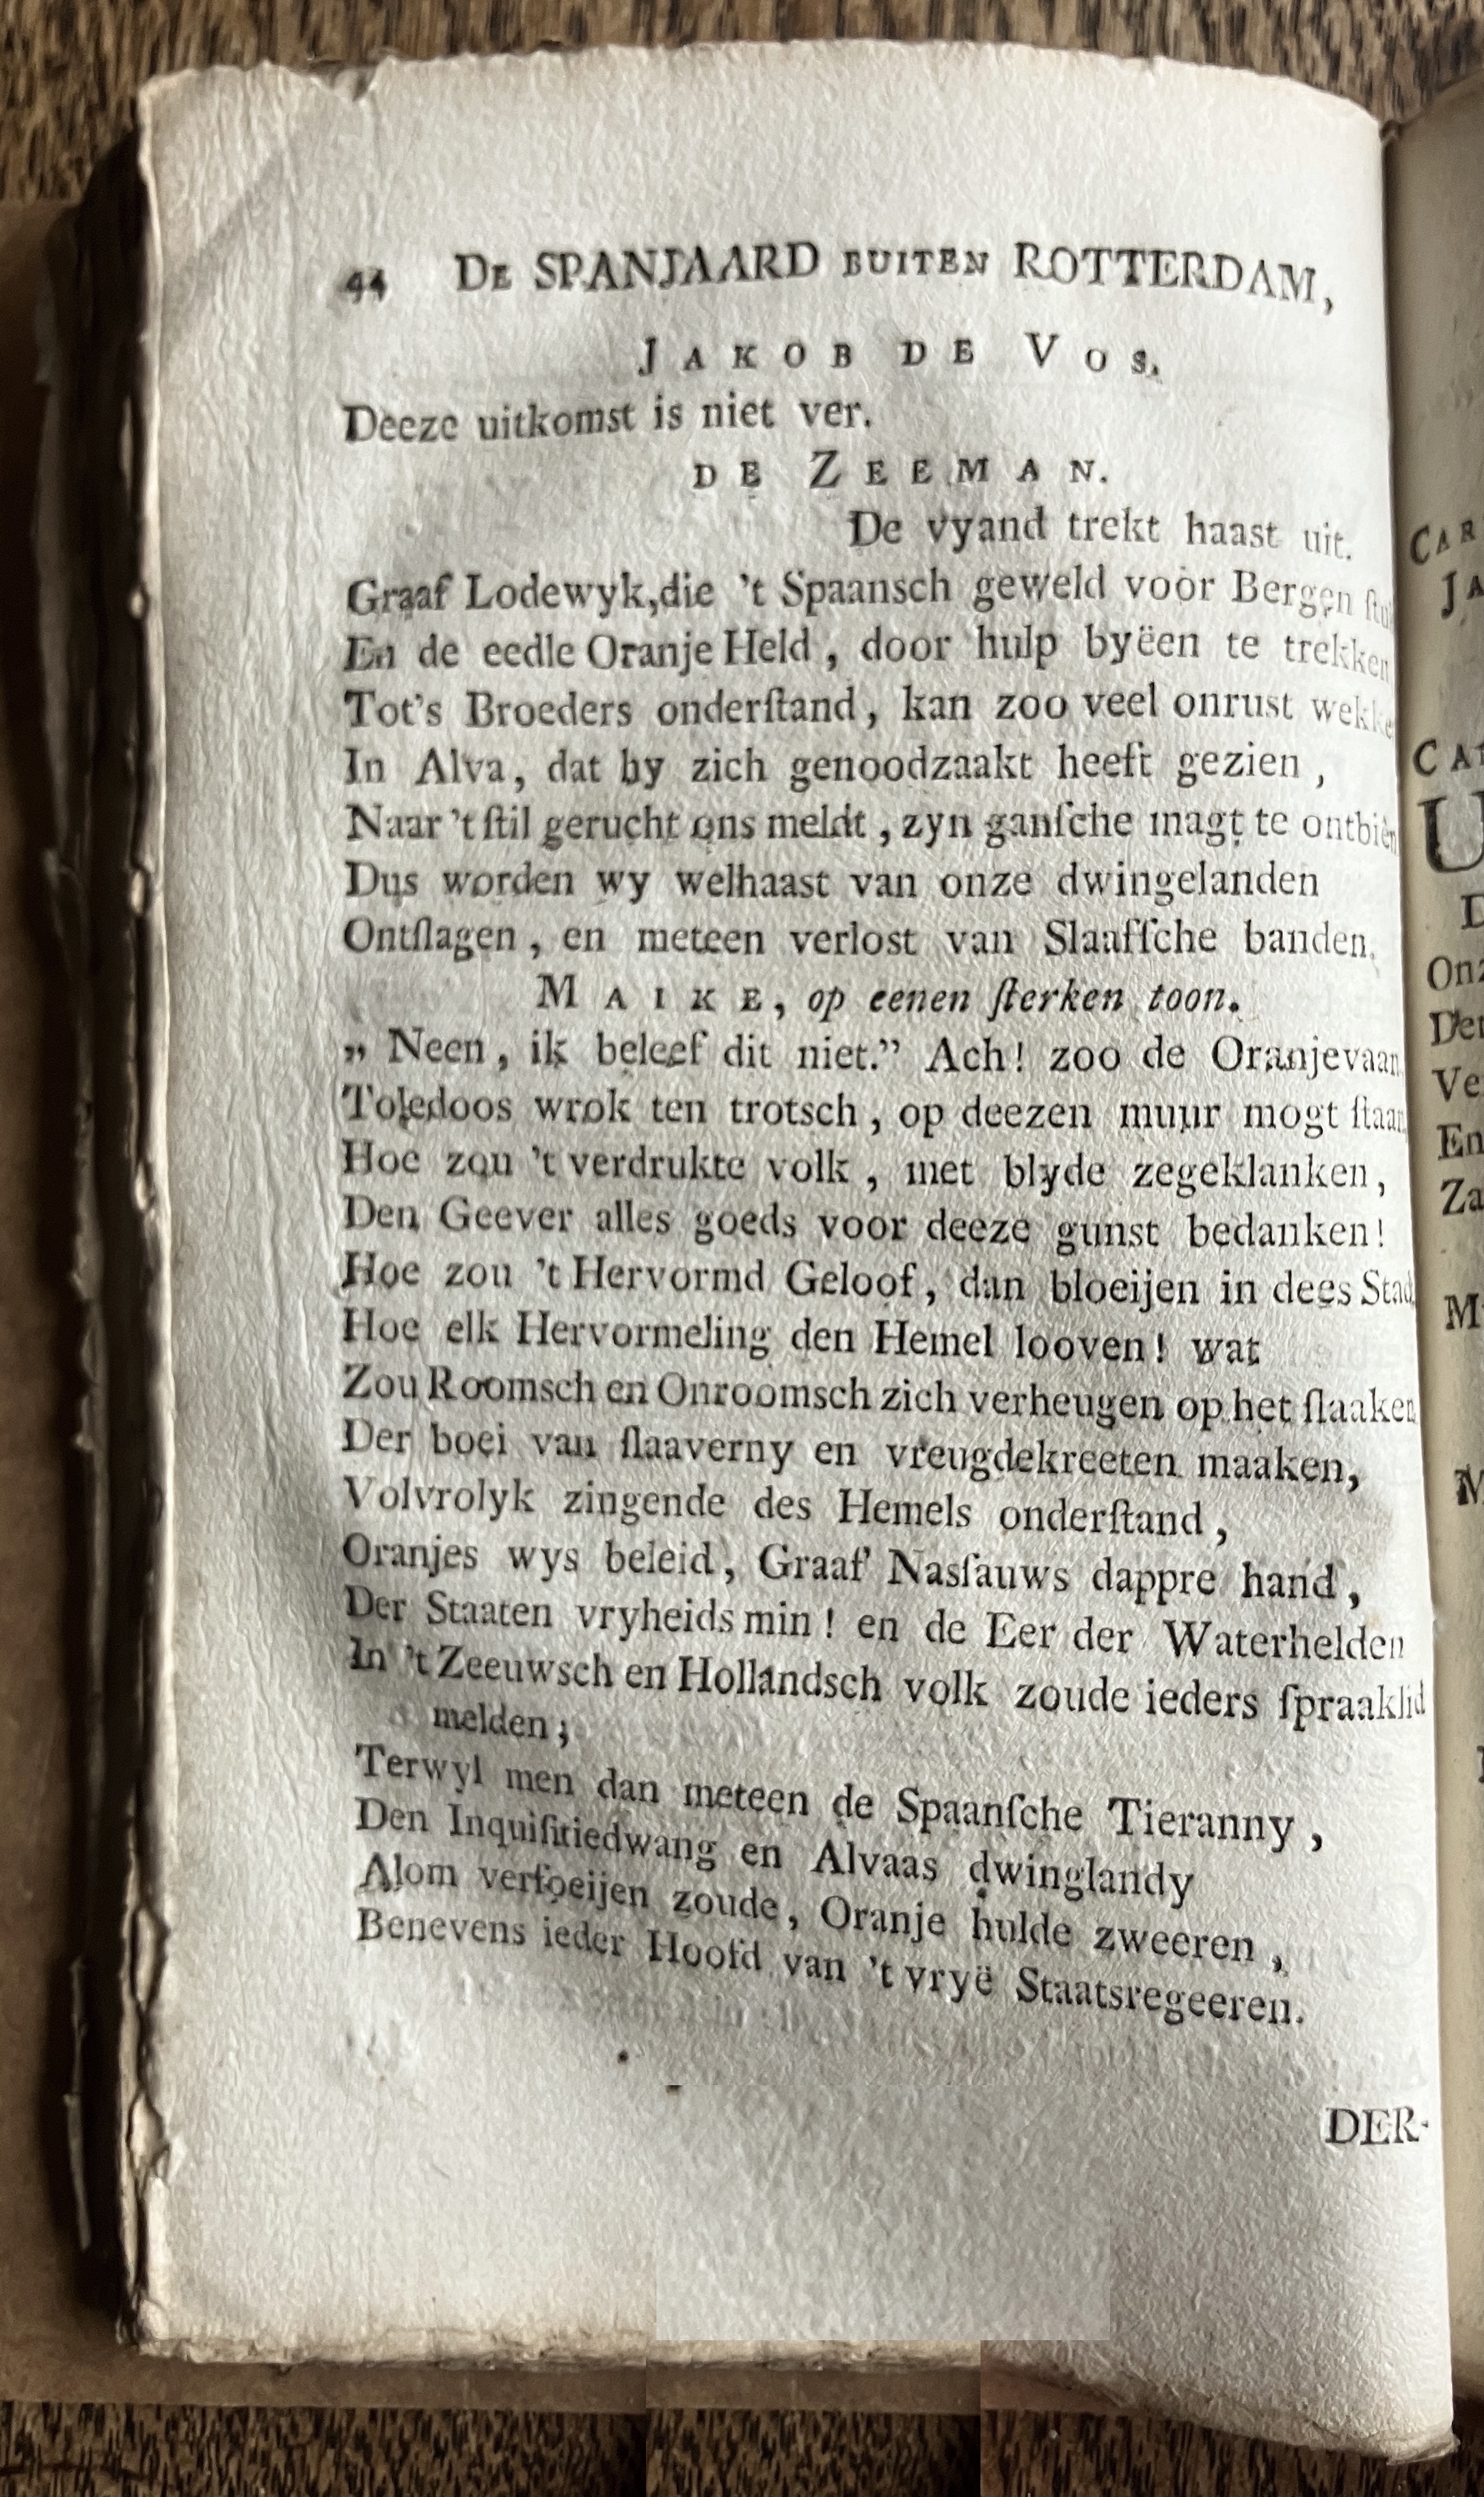 44 DE SPANJAARD BUITEN ROTTERDAM,
JAKOB DE VOS.
Deeze uitkomst is niet ver.
DE ZEEMAN.
De vyand trekt haast uit.
Graaf Lodewyk, die 't Spaansch geweld voor Bergen
En de eedle Oranje Held, door hulp byëen te trekken
Tot's Broeders onderſtand, kan zoo veel onrust wekke
In Alva, dat hy zich genoodzaakt heeft gezien,
Naar 't ſtil gerucht ons meldt, zyn ganſche magt te ontbiên
Dus worden wy welhaast van onze dwingelanden
Ontſlagen, en meteen verlost van Slaafſche banden.
MAIKE, op eenen ſterken toon.
„ Neen, ik beleef dit niet.” Ach! zoo de Oranjevaan
Toledoos wrok ten trotsch, op deezen muur mogt ſtaan
Hoe zou 't verdrukte volk, met blyde zegeklanken,
Den Geever alles goeds voor deeze gunst bedanken!
Hoe zou 't Hervormd Geloof, dan bloeijen in dees Stad
Hoe elk Hervormeling den Hemel looven! wat
Zou Roomsch en Onroomsch zich verheugen op het ſlaaken
Der boei van ſlaaverny en vreugdekreeten maaken,
Volvrolyk zingende des Hemels onderſtand,
Oranjes wys beleid, Graaf Nasſauws dappre hand,
Der Staaten vryheids min! en de Eer der Waterhelden
In 't Zeeuwsch en Hollandsch volk zoude ieders ſpraaklid
melden;
Terwyl men dan meteen de Spaanſche Tieranny,
Den Inquiſitiedwang en Alvaas dwinglandy
Alom verfoeijen zoude, Oranje hulde zweeren,
Benevens ieder Hoofd van 't vryë Staatsregeeren.
DER-
CAR
JA
CAT
U
D
Onz
Den
Ve
En
Za
M
M